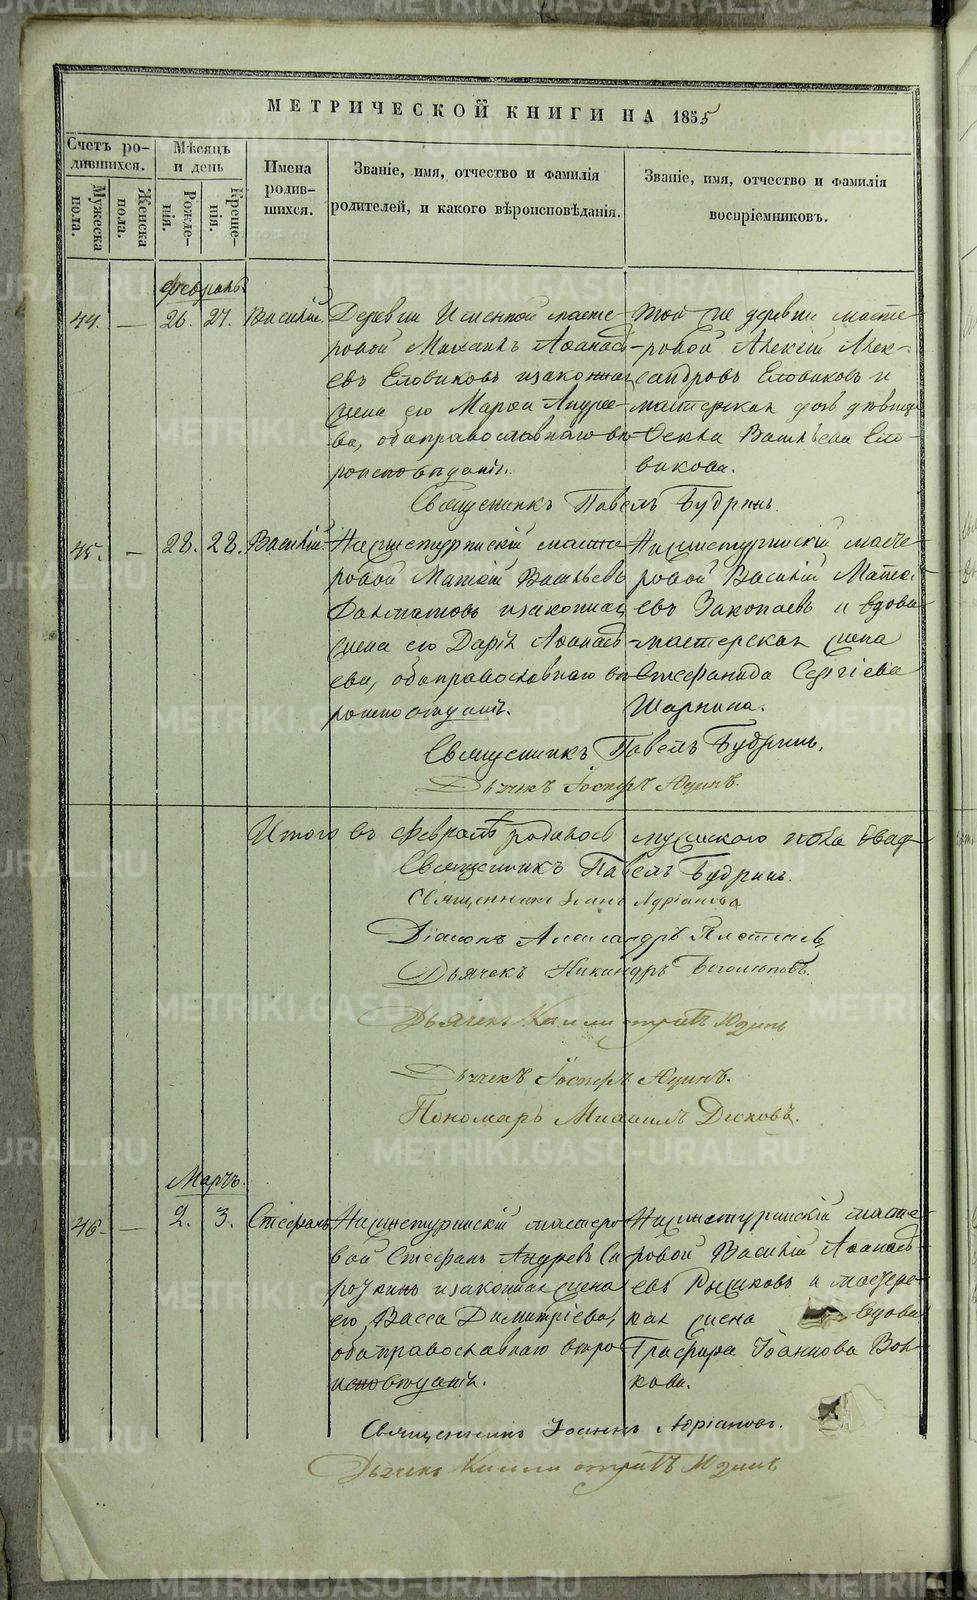 МЕТРИЧЕСКОЙ КНИГИ НА 1855
Счетъ родившихся.
Мужеска пола.
Женска пола.
Мѣсяцъ и день
Рожденія.
Крещенія.
Имена родившихся.
Званіе, имя, отчество и фамилія родителей, и какого вѣроисповѣданія.
Званіе, имя, отчество и фамилія воспріемниковъ.
Февраль
44. — 26. 27. Василій.
Деревни масте-
ровой Михаилъ Аѳанасі-
евъ Еловиковъ и законная
жена его Марѳа Андрее-
ва, оба православнаго вѣ-
роисповѣданія.
Той же деревни масте-
ровой Алексій Алек-
сандровъ Еловиковъ и
мастерская дочь дѣвица
Ѳекла Васильева Ело-
викова.
Священникъ Павелъ Будринъ.
45. — 28. 28. Василій.
Нижнетуринскій масте-
ровой Матѳій Васильевъ
и законная
жена его Дарія Аѳанась-
ева, оба православнаго вѣ-
роисповѣданія.
Нижнетуринскій масте-
ровой Василій Матѳе-
евъ Закопаевъ и вдова
мастерская жена
Стефанида Сергіева
Шарнина.
Священникъ Павелъ Будринъ.
Дьячекъ Іосифъ Юдинъ.
Итого въ Февралѣ родилось мужскаго пола двад-
Священникъ Павелъ Будринъ.
Священникъ Іоаннъ Адріановъ
Діаконъ Александръ
Дьячекъ Никандръ Боголюповъ.
Дьячекъ Каллистратъ Юдинъ
Дьячекъ Іосифъ Юдинъ.
Пономарь Михаилъ
Мартъ.
46 — 2. 3. Стефанъ.
Нижнетуринскій мастеро-
вой Стефанъ Андреевъ Си-
рочкинъ и законная жена
его Васса Димитріева,
оба православнаго вѣро-
исповѣданія.
Нижнетуринскій масте-
ровой Василій Аѳанась-
евъ Рыжковъ и мастерс-
кая жена вдова
Глафира Іоаннова Вол-
кова.
Священникъ Іоаннъ Адріановъ.
Дьячекъ Каллистратъ Юдинъ
METRIKI.GASO-URAL.RU